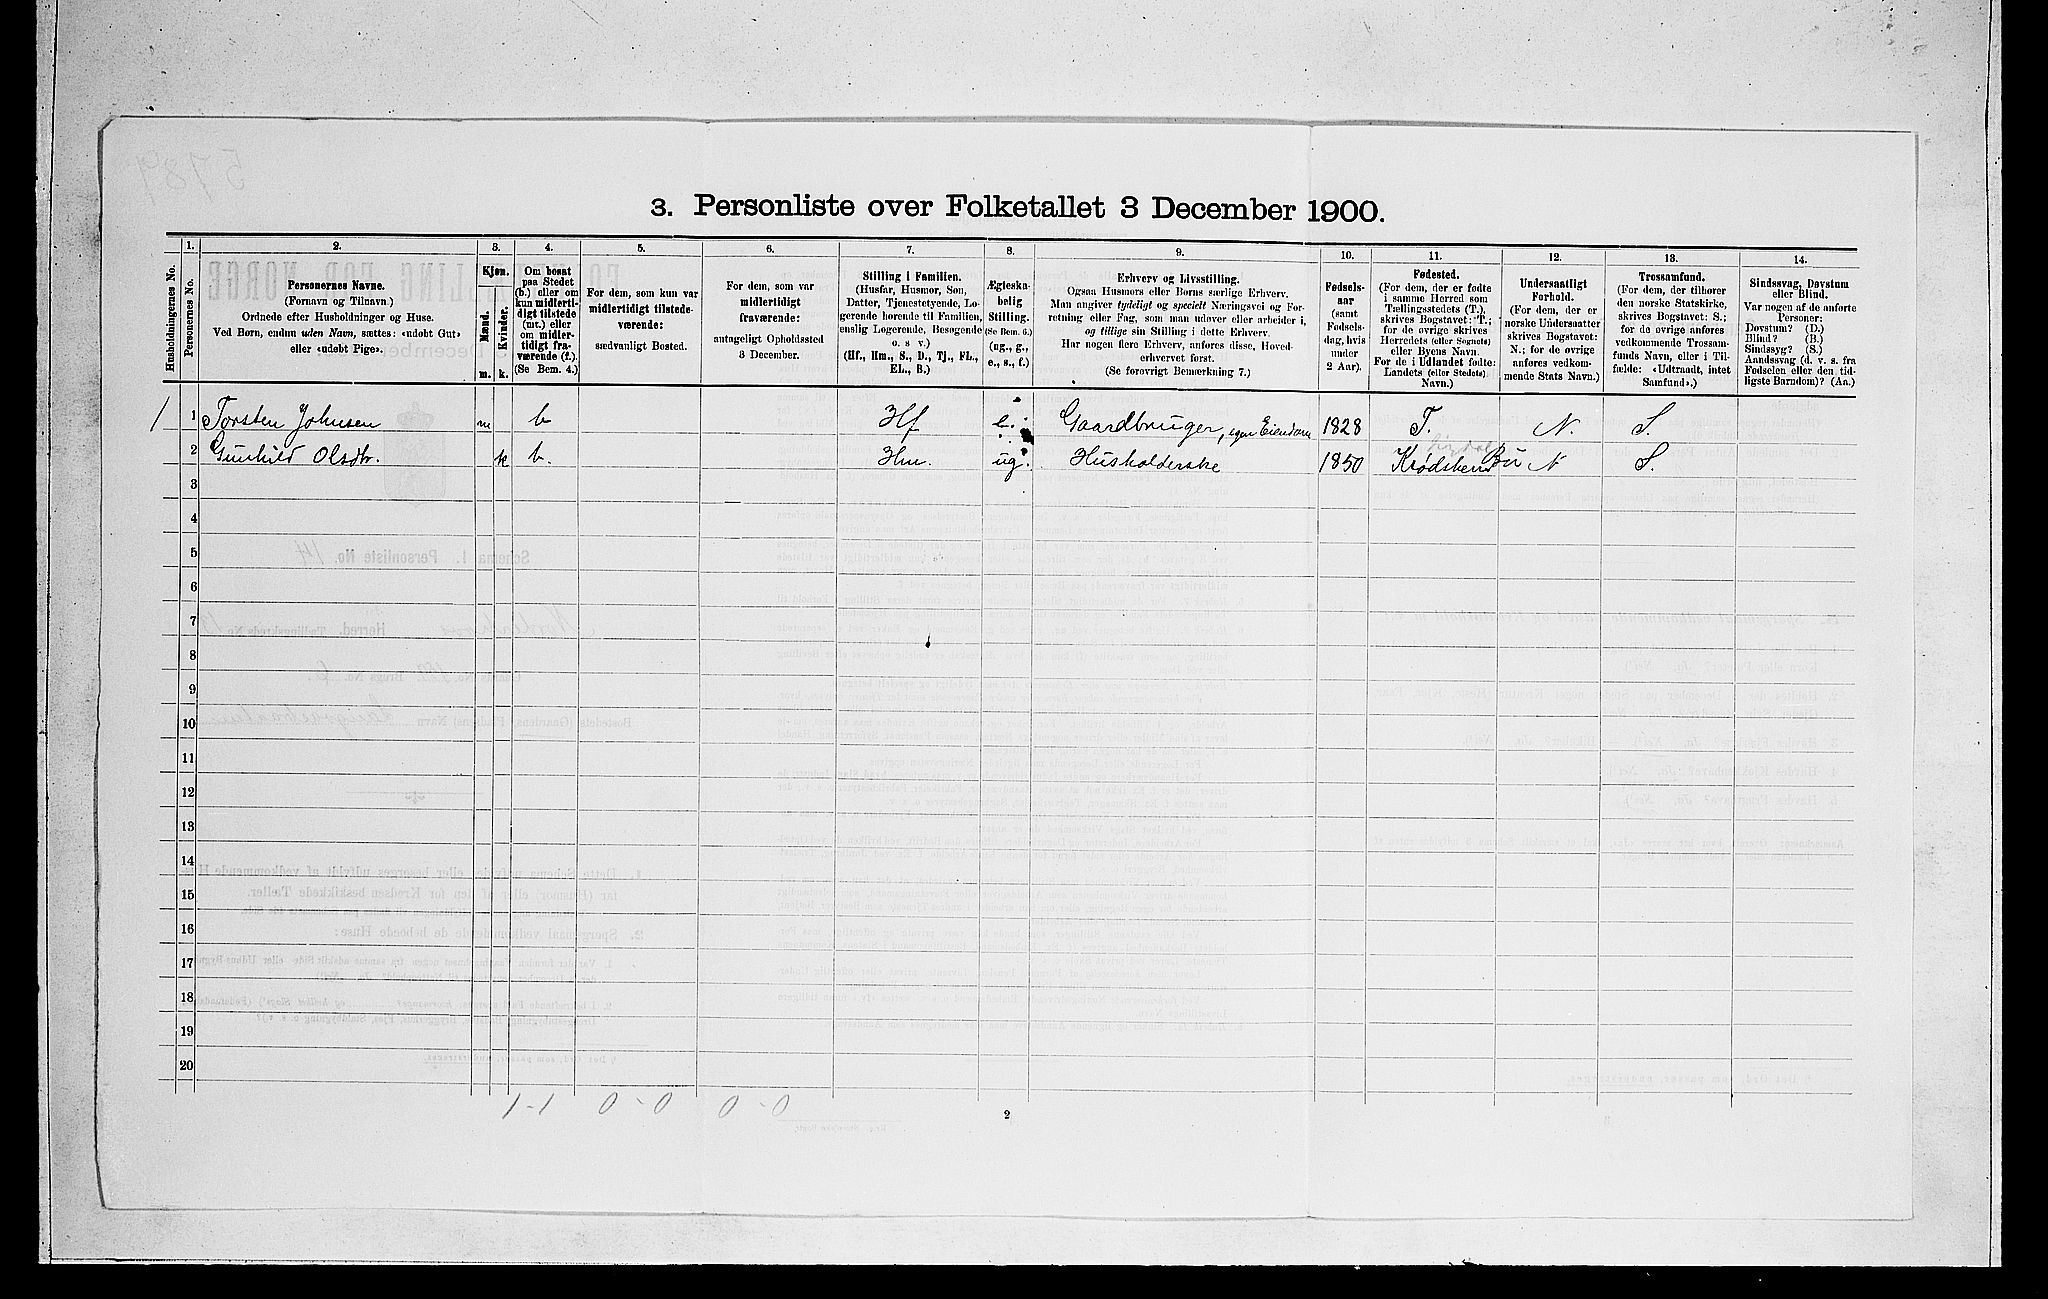 3. Personliste over Folketallet 3 December 1900.
1. 2. 3. 4. 5. 6. 7. 8. 9. 10. 11. 12. 13. 14.
Husholdningernes No.
Personernes No.
Personernes Navne.
(Fornavn og Tilnavn.)
Ordnede efter Husholdninger og Huse.
Ved Børn, endnu uden Navn, sættes: «udøbt Gut»
eller «udøbt Pige».
Kjøn.
Mænd.
Kvinder.
m. k.
Om bosat
paa Stedet
(b.) eller om
kun midlerti-
digt tilstede
(mt.) eller
om midler-
tidigt fra-
værende (f.).
(Se Bem. 4.)
For dem, som kun var
midlertidigt tilstede-
værende:
sædvanligt Bosted.
For dem, som var
midlertidigt
fraværende:
antageligt Opholdssted
3 December.
Stilling i Familien.
(Husfar, Husmor, Søn,
Datter, Tjenestetyende, Lo-
gerende hørende til Familien,
enslig Logerende, Besøgende
o. s v.)
(Hf., Hm., S., D., Tj., FL.,
EL., B.)
Ægteska-
belig
Stilling.
(Se Bem. 6.)
(ug., g.,
e., s., f.)
Erhverv og Livsstilling.
Ogsaa Husmors eller Børns særlige Erhverv.
Man angiver tydeligt og specielt Næringsvei og For-
retning eller Fag, som man udøver eller arbeider i,
og tillige sin Stilling i dette Erhverv.
Har nogen flere Erhverv, anføres disse, Hoved-
erhvervet først.
(Se forøvrigt Bemærkning 7.)
Fødsels-
aar
(samt
Fødsels-
dag, hvis
under
2 Aar).
Fødested.
(For dem, der er fødte
i samme Herred som
Tællingsstedets (T.),
skrives Bogstavet: T.;
for de øvrige skrives
Herredets (eller Sognets)
eller Byens Navn.
For de i Udlandet fødte:
Landets (eller Stedets)
Navn.)
Undersaatligt
Forhold.
(For dem, der er
norske Undersaatter
skrives Bogstavet:
N.; for de øvrige
anføres vedkom-
mende Stats Navn.)
Trossamfund.
(For dem, der tilhører
den norske Statskirke,
skrives Bogstavet: S.;
for de øvrige anføres
vedkommende Trossam-
funds Navn, eller i Til-
fælde: «Udtraadt, intet
Samfund».)
Sindssvag, Døvstum
eller Blind.
Var nogen af de anførte
Personer:
Døvstum? (D.)
Blind? (B.)
Sindssyg? (S.)
Aandssvag (d. v. s. fra
Fødselen eller den tid-
ligste Barndom)? (Aa.)
1 1 Torsten Johnsen m b Hf e. Gaardbruger, egen Eiendom 1828 T. N. S.
2 Gunhild Olsdtr. k b. Hm. ug. Husholderske 1850 Krødsherred Bu N S.
3
4
5
6
7
8
9
10
11
12
13
14
15
16
17
18
19
20
1-1 0-0 0-0
2